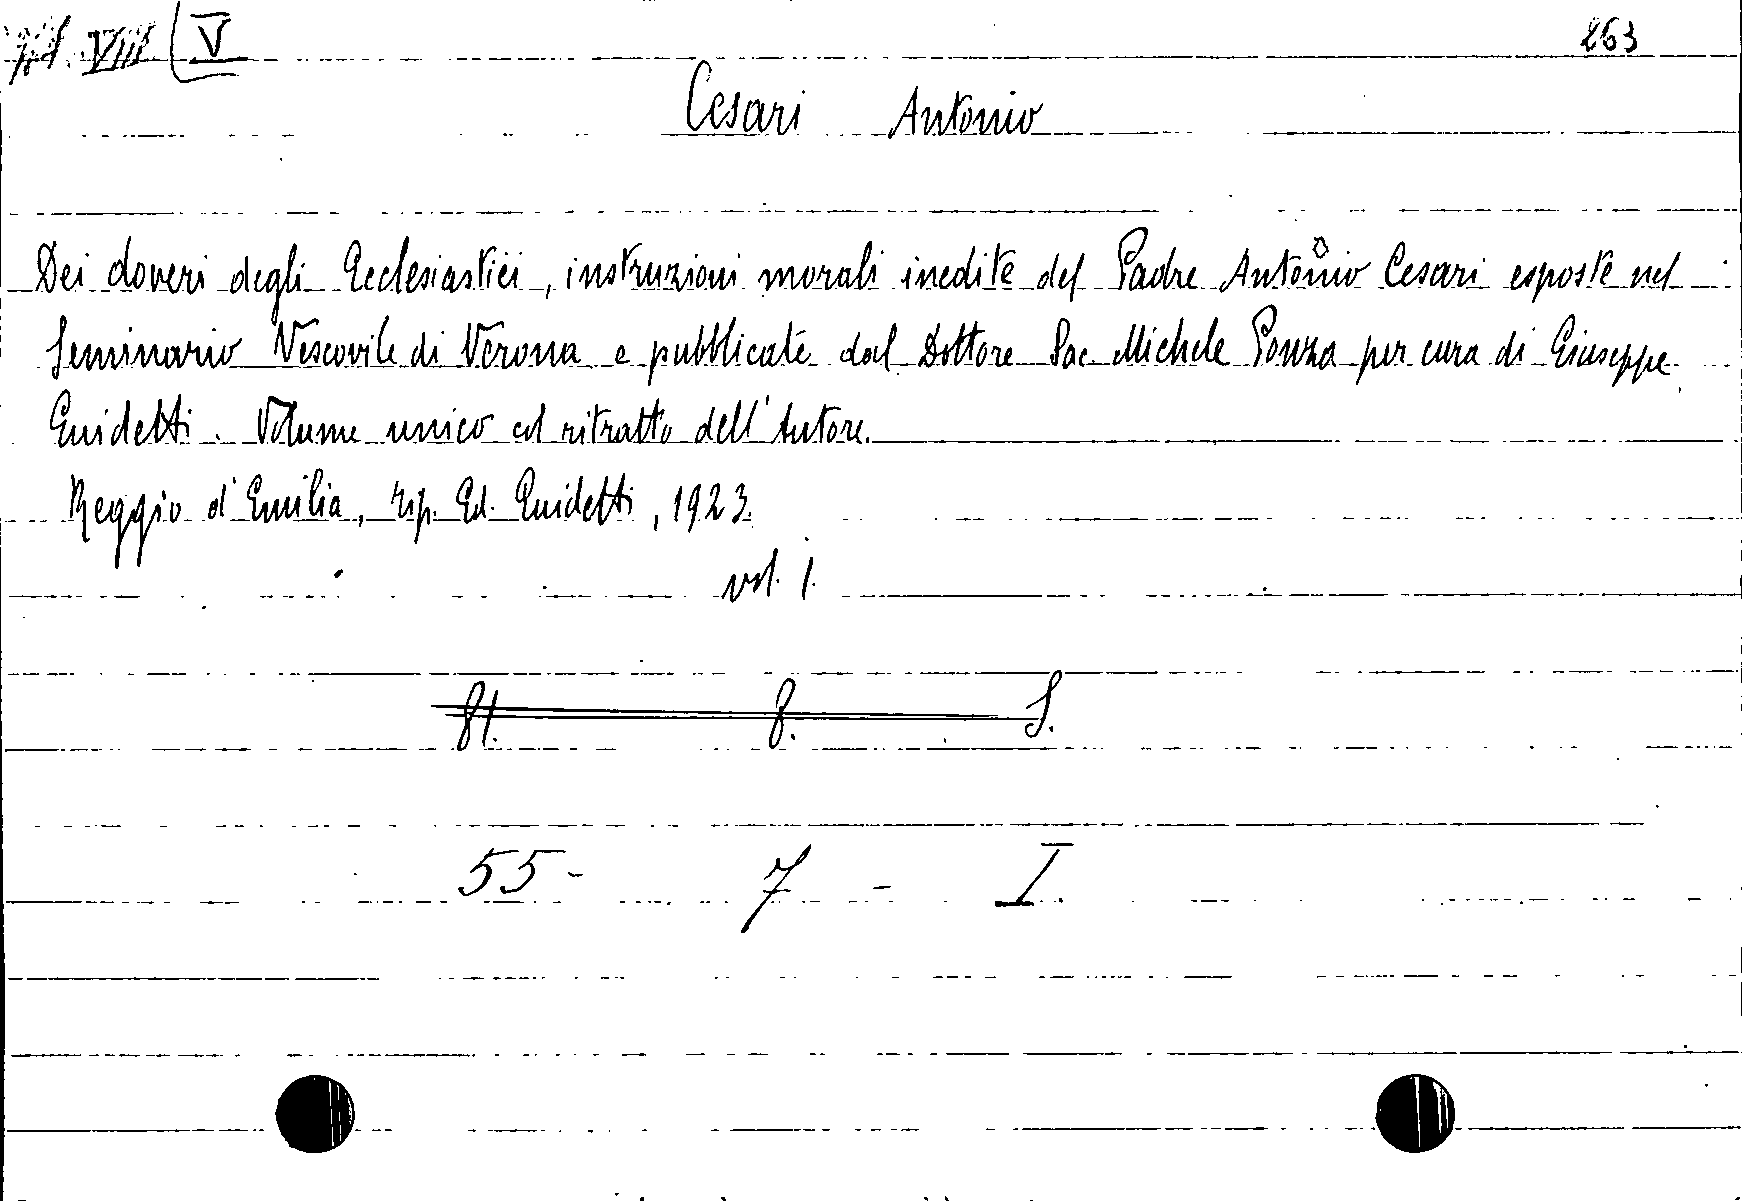 VIII (V
263
Cesari Antonio
Dei doveri degli Ecclesiastici, instruzioni morali inedite del Padre Antonio Cesari esposte nel
Seminario Vescovile di Verona e pubblicate dal Dottore Sac. Michele Ponza per cura di Giuseppe
Guidetti. Volume unico col ritratto dell'Autore.
Reggio d'Emilia, tip. Ed. Guidetti, 1923.
vol. 1.
81. 8. S.
55 - 7 - I.